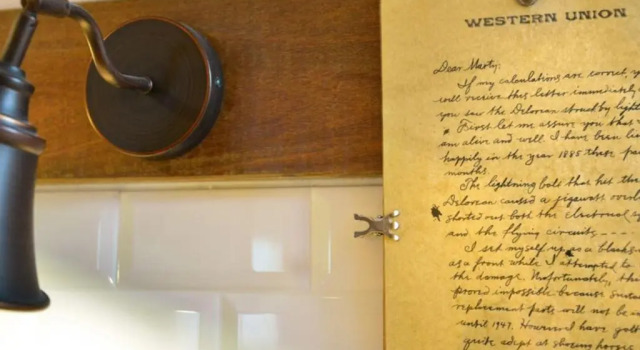 WESTERN UNION
Dear Marty:
If my calculations are correct, y
will receive this letter immediately
you saw the Delorean struck by light
First let me assure you that
am alive and well. I have been li
happily in the year 1885 these pa
months.
The lightning bolt that hit the
Delorean caused a jigowatt overl
shorted out both the
and the flying circuits
I set myself up as a blacks
as a front while I attempted to
the damage. Unfortunately, th
proved impossible because suita
replacement parts will not be
until 1947. However I have got
quite adept at shoeing horses